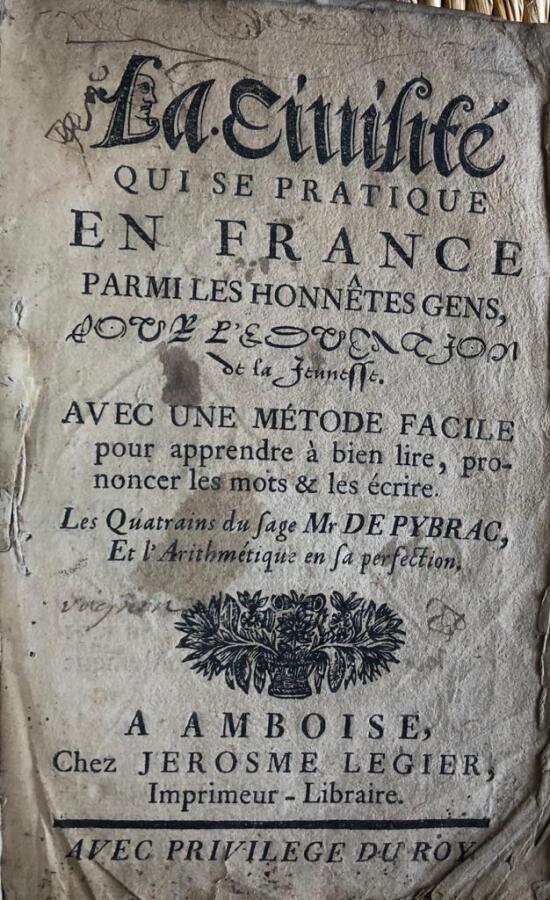 La Civilité
QUI SE PRATIQUE
EN FRANCE
PARMI LES HONNÊTES GENS,
POUR L'EDUCATION
de la Jeunesse.
AVEC UNE MÉTODE FACILE
pour apprendre à bien lire, pro-
noncer les mots & les écrire.
Les Quatrains du ſage Mr DE PYBRAC,
Et l'Arithmétique en ſa perfection.
A AMBOISE,
Chez JEROSME LEGIER,
Imprimeur - Libraire.
AVEC PRIVILEGE DU ROY